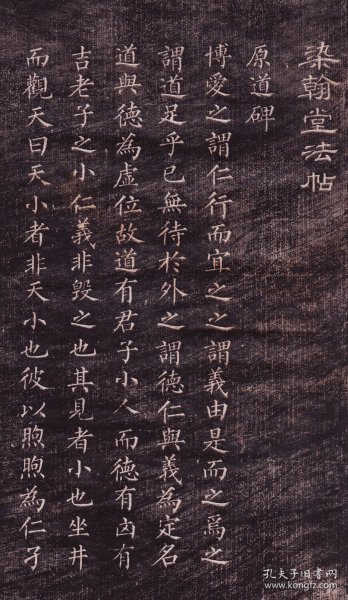 染翰堂法帖
原道碑
博愛之謂仁行而宜之之謂義由是而之焉之
謂道足乎己無待於外之謂德仁與義為定名
道與德為虛位故道有君子小人而德有凶有
吉老子之小仁義非毀之也其見者小也坐井
而觀天曰天小者非天小也彼以煦煦為仁孑
孔夫子旧书网